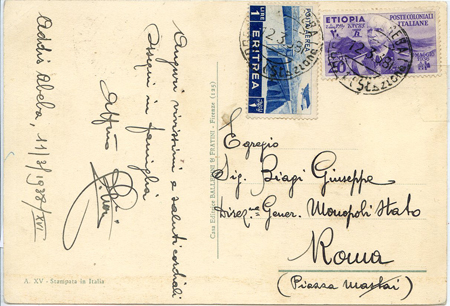 Addis Abeba, 11/3/1938/XVI
Auguri vivissimi e saluti cordiali
in famiglia
Casa Editrice BALLERINI & FRATINI - Firenze (125)
A. XV - Stampata in Italia
1 LIRE
ERITREA
1
ETIOPIA
POSTE COLONIALI
ITALIANE
Egregio
Sig. Biagi Giuseppe
Direz.ne Gener. Monopoli Stato
Roma
(Piazza Mastai)